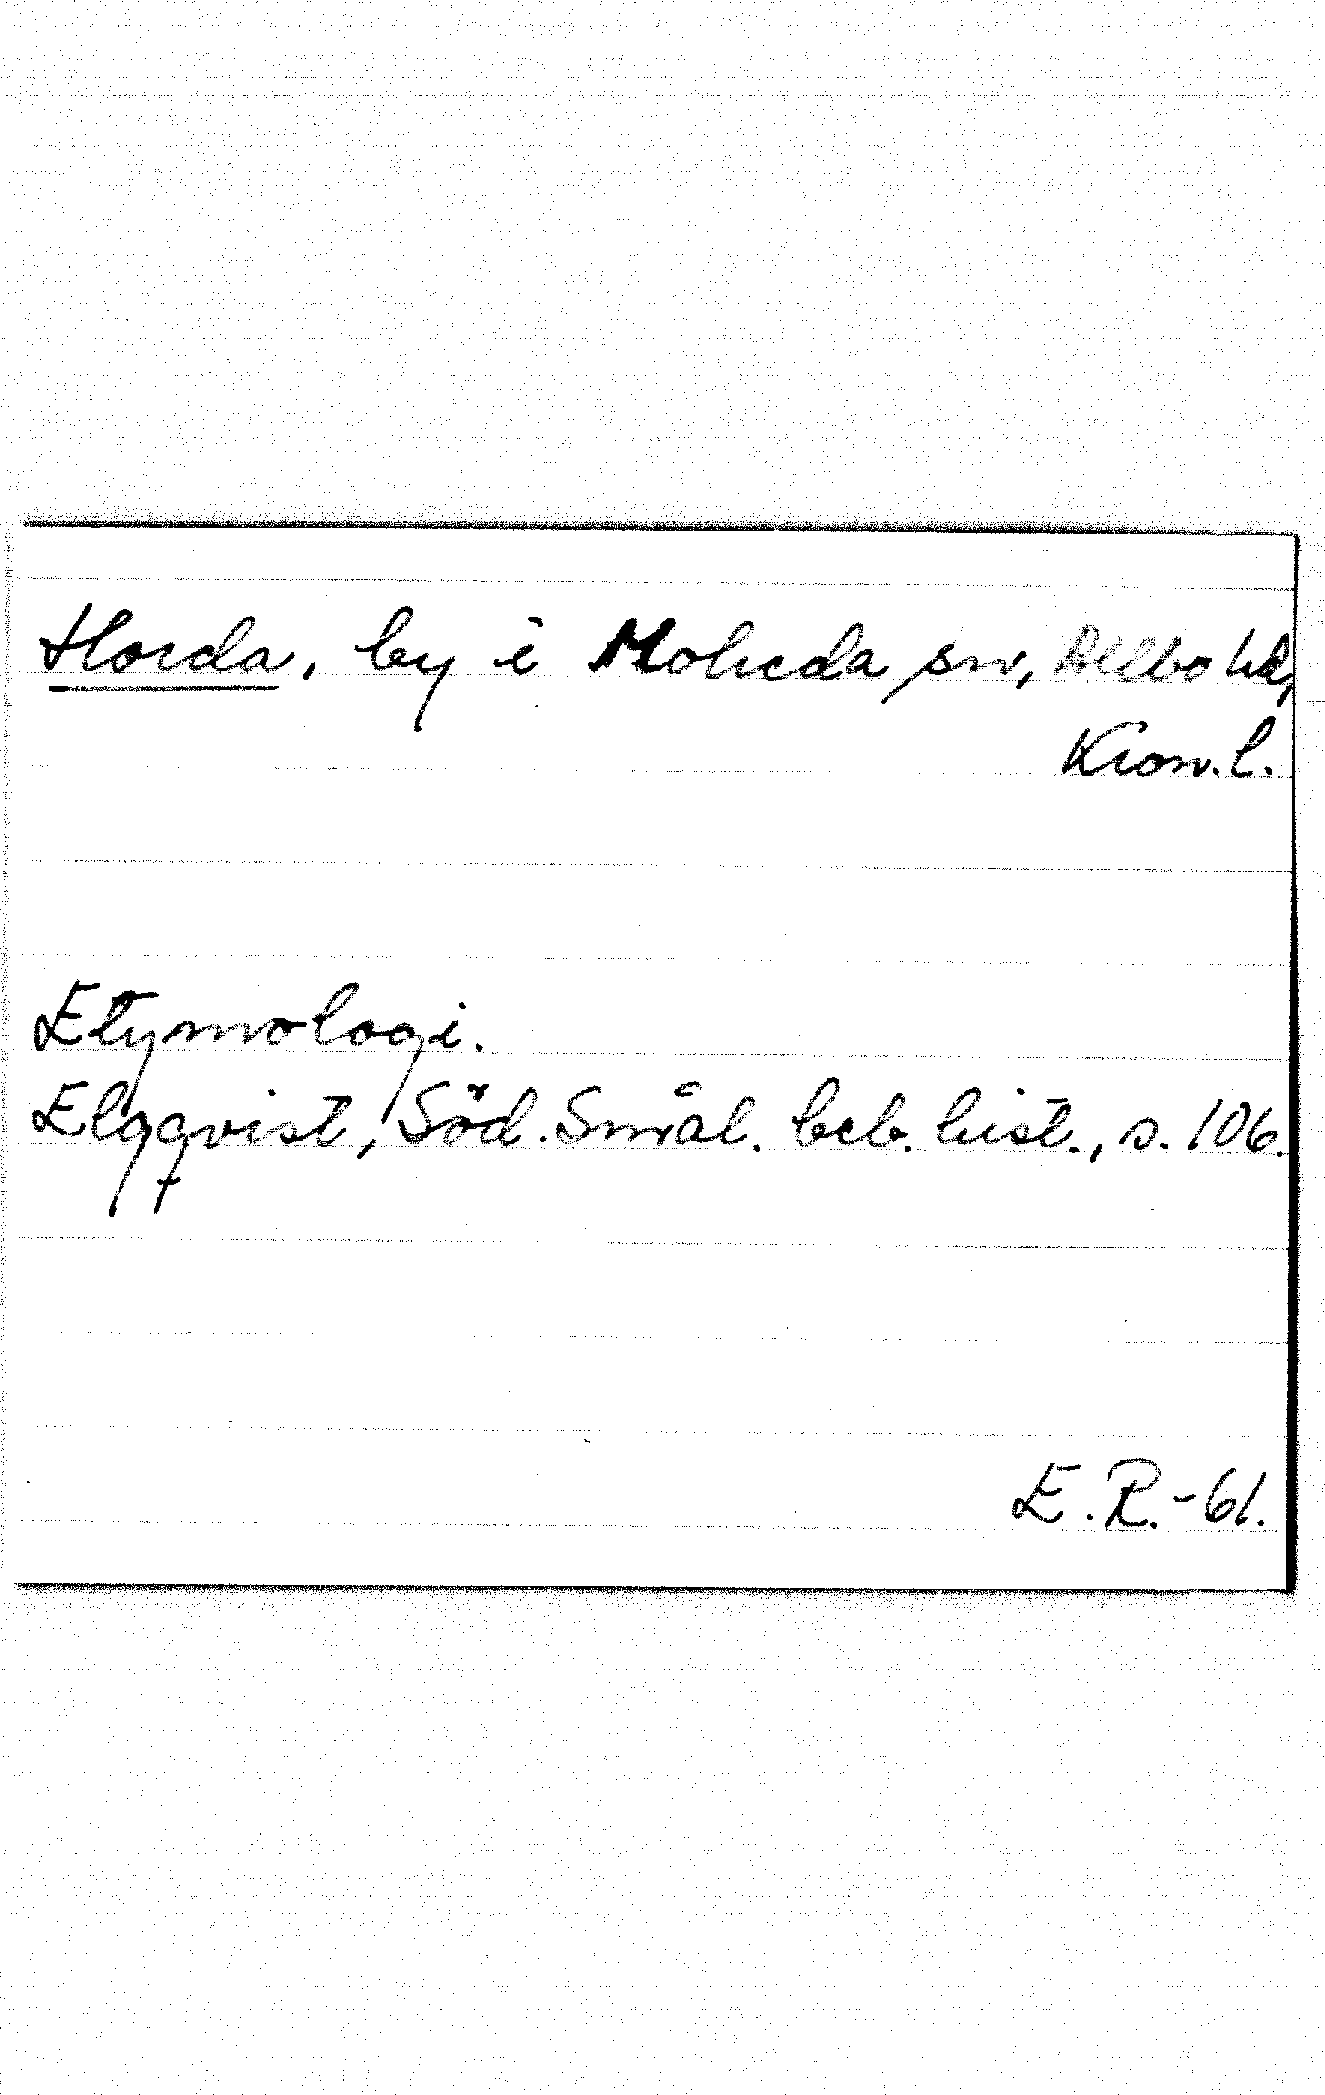 Horda, by i Moheda sn, Allbo hd,
Kron. l.
Etymologi.
Elgqvist, Söd. Smål. beb. hist., s. 106.
E. R. - 61.